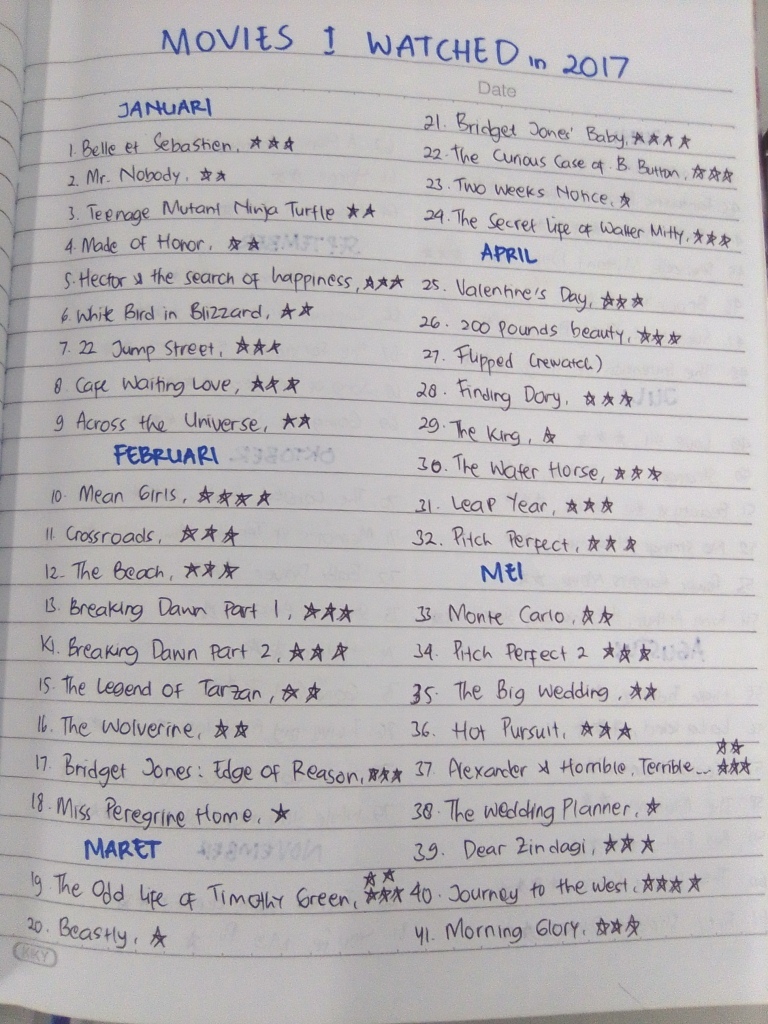 MOVIES I WATCHED in 2017
Date
JANUARI
1. Belle et Sebastien, ★★★
2. Mr. Nobody, ★★
3. Teenage Mutant Ninja Turtle ★★
4. Made of Honor, ★★
5. Hector & the search of happiness, ★★★
6. White Bird in Blizzard, ★★
7. 22 Jump Street, ★★★
8. Cafe Waiting Love, ★★★
9 Across the Universe, ★★
FEBRUARI
10. Mean Girls, ★★★★
11. Crossroads, ★★★
12. The Beach, ★★★
13. Breaking Dawn Part 1, ★★★
14. Breaking Dawn Part 2, ★★★
15. The Legend of Tarzan, ★★
16. The Wolverine, ★★
17. Bridget Jones: Edge of Reason, ★★★
18. Miss Peregrine Home, ★
MARET
19. The Odd life of Timothy Green, ★★★★★
20. Beastly, ★
KKY
21. Bridget Jones' Baby, ★★★★
22. The Curious Case of B. Button, ★★★
23. Two Weeks Notice, ★
24. The Secret life of Walter Mitty, ★★★
APRIL
25. Valentine's Day, ★★★
26. 200 pounds beauty, ★★★
27. Flipped (rewatch)
28. Finding Dory, ★★★
29. The King, ★
30. The Water Horse, ★★★
31. Leap Year, ★★★
32. Pitch Perfect, ★★★
MEI
33. Monte Carlo, ★★
34. Pitch Perfect 2 ★★★
35. The Big Wedding, ★★
36. Hot Pursuit, ★★★
37. Alexander & Horrible, Terrible... ★★★★★
38. The Wedding Planner, ★
39. Dear Zindagi, ★★★
40. Journey to the West, ★★★★
41. Morning Glory, ★★★